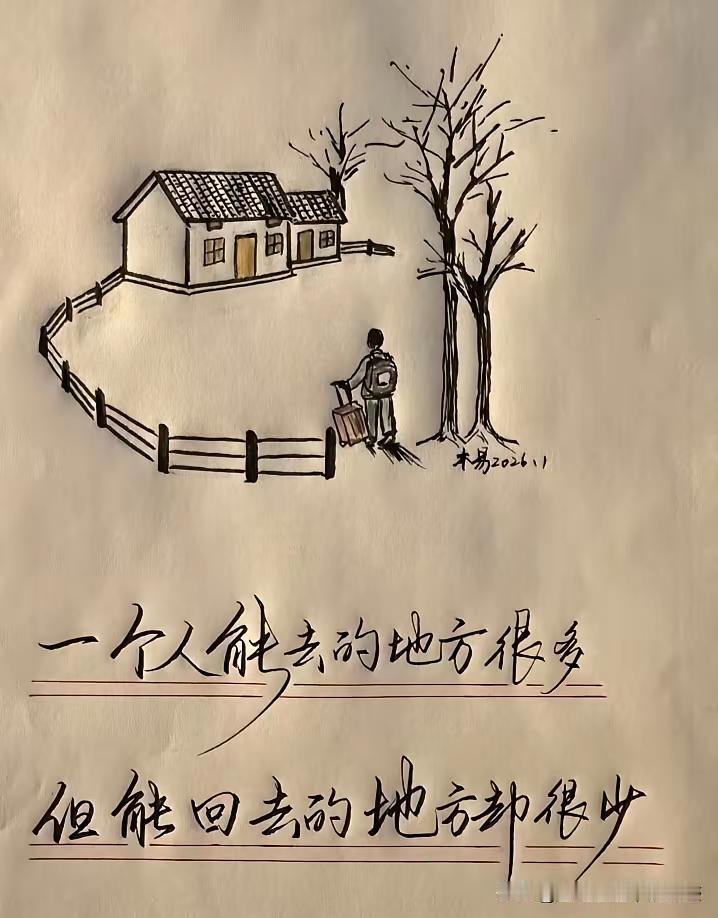 米易2026.1
一个人能去的地方很多
但能回去的地方却很少